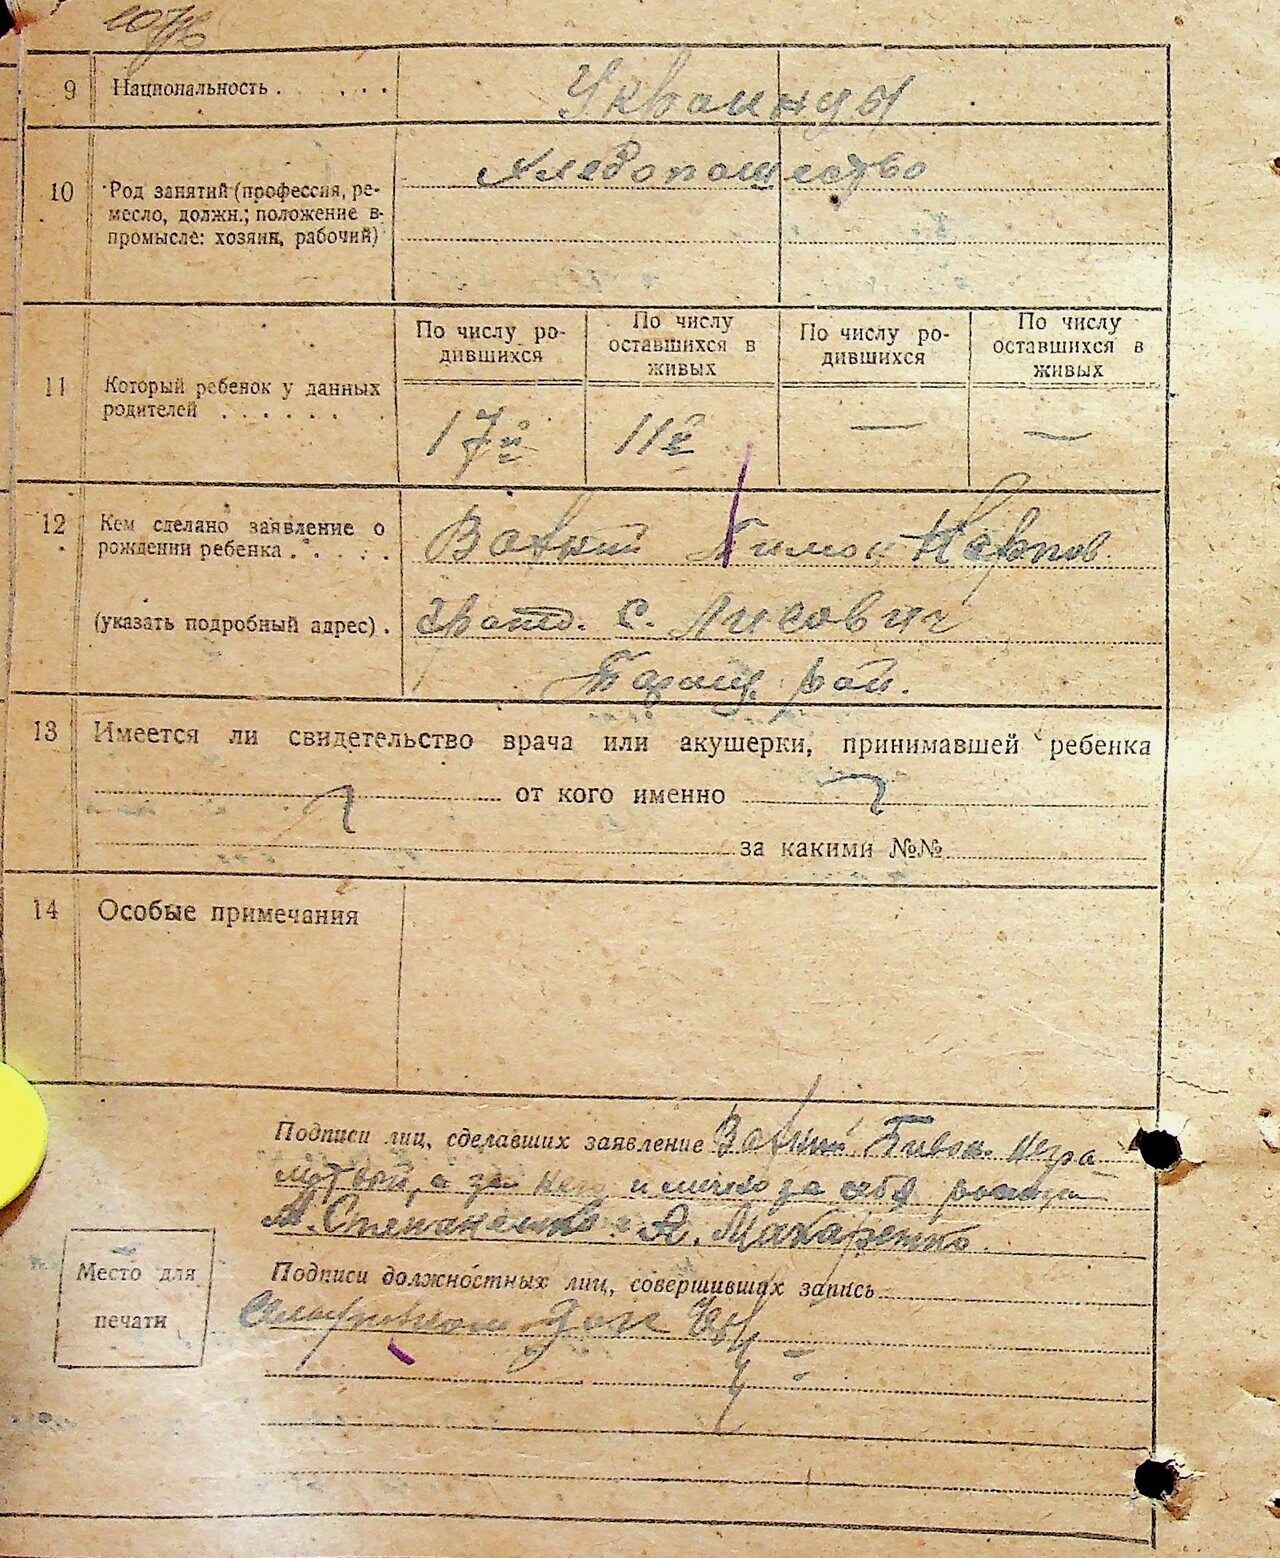 9 Национальность . . . . . Украинцы
10 Род занятий (профессия, ре-
месло, должн.; положение в
промысле: хозяин, рабочий)
Хлебопашество
По числу ро-
дившихся
По числу
оставшихся в
живых
По числу ро-
дившихся
По числу
оставшихся в
живых
11 Который ребенок у данных
родителей . . . . . . .
17й 11й — —
12 Кем сделано заявление о
рождении ребенка . . . . .
Тимон Карпов.
(указать подробный адрес) .
с. Лисович
Таращ. рай.
13 Имеется ли свидетельство врача или акушерки, принимавшей ребенка
от кого именно
за какими №№
14 Особые примечания
Подписи лиц, сделавших заявление негра-
мотный, а за него и лично за себя
М. Степаненко А. Макаренко.
Место для
печати
Подписи должностных лиц, совершивших запись